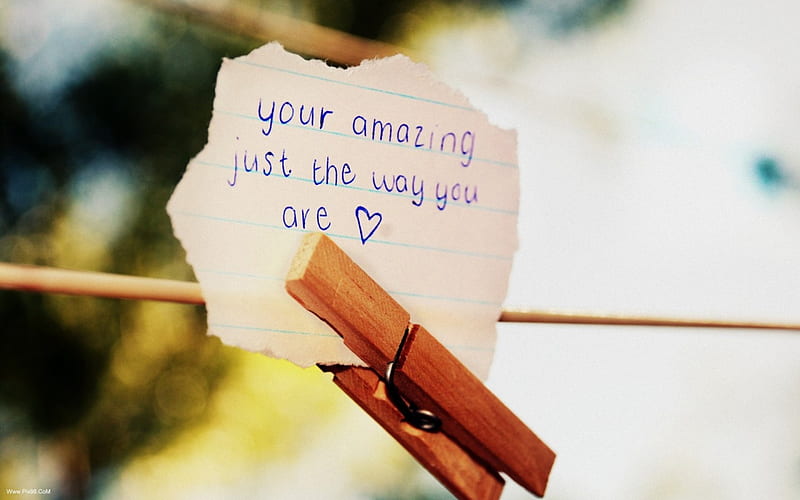 your amazing
just the way you
are ♡
Www.Pix98.CoM